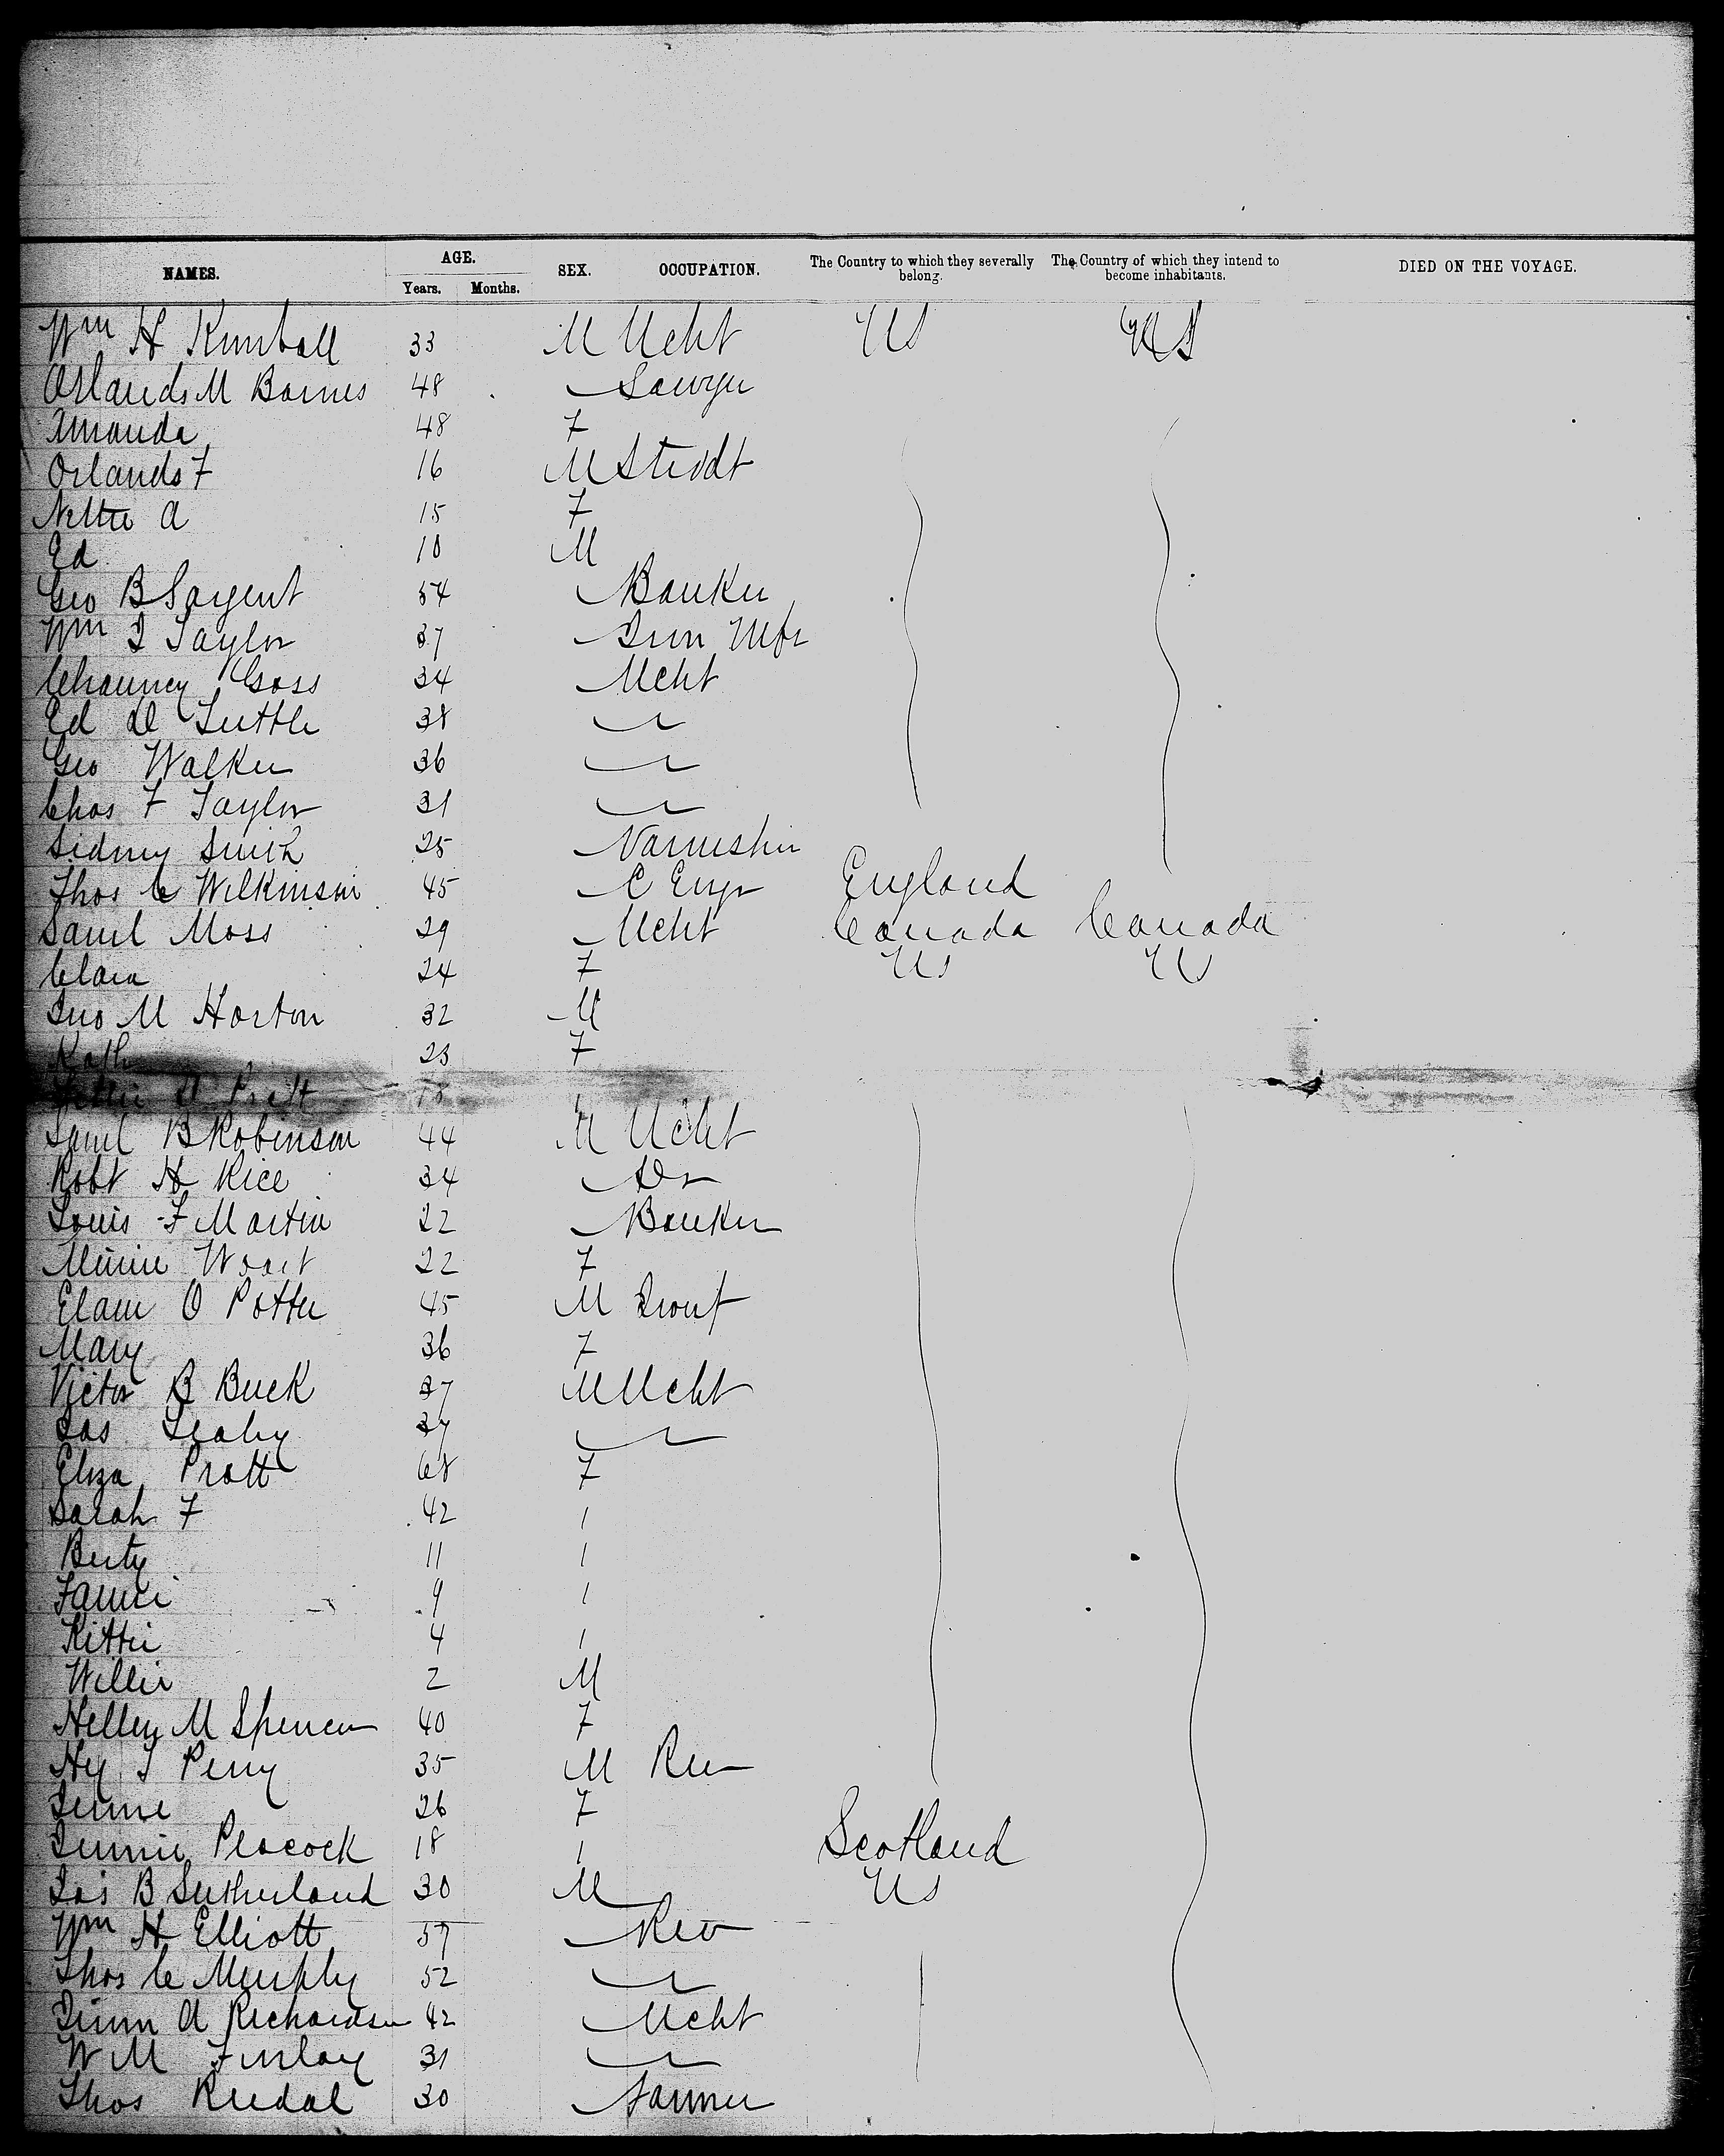 NAMES. AGE. Years. Months. SEX. OCCUPATION. The Country to which they severally belong. The Country of which they intend to become inhabitants. DIED ON THE VOYAGE.
Wm H Kimball 33 M Mcht US US
Orlando M Barnes 48 Lawyer
Amanda 48 F
Orlando F 16 M Studt
Nettie A 15 F
Ed 10 M
Geo B Sargent 54 Banker
Wm I Taylor 37 Iron Mfr
Chauncey Goss 34 Mcht
Ed D Tuttle 38
Geo Walker 36
Chas F Taylor 31
Sidney Smith 25 Varnisher
Thos C Wilkinson 45 C Engr England
Saml Moss 29 Mcht Canada Canada
Clara 24 F US US
Jno M Horton 32 M
Kath 23 F
Nettie A Pratt 18
Saml B Robinson 44 M Mcht
Robt H Rice 34 Dr
Louis F Martin 22 Banker
Minnie 22 F
Elam O Potter 45 M
Mary 36 F
Victor B Buck 37 M Mcht
Jas Leahy 37
Eliza Pratt 68 F
Sarah F 42
Berty 11
Fannie 9
Kittie 4
Willie 2 M
M Spencer 40 F
Hy T Perry 35 M Rev
Jennie 26 F
Jennie Peacock 18 Scotland
Jas B Sutherland 30 M US
Wm H Elliott 57 Rev
Thos C Murphy 52
A Richardson 42 Mcht
W M Finlay 31
Thos 30 Farmer